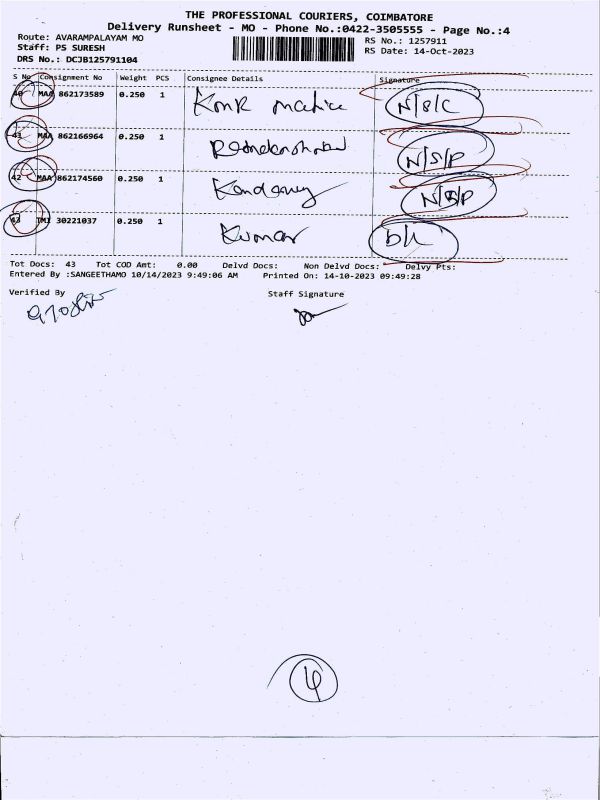 THE PROFESSIONAL COURIERS, COIMBATORE
Delivery Runsheet - MO - Phone No.:0422-3505555 - Page No.:4
Route: AVARAMPALAYAM MO RS No.: 1257911
Staff: PS SURESH RS Date: 14-Oct-2023
DRS No.: DCJB125791104
S No Consignment No Weight PCS Consignee Details Signature
40 MAA 862173589 0.250 1 N/S/C
MAA 862166964 0.250 1 N/S/P
42 MAA 862174560 0.250 1
43 30221037 0.250 1 Kumar
Tot Docs: 43 Tot COD Amt: 0.00 Delvd Docs: Non Delvd Docs: Delvy Pts:
Entered By :SANGEETHAMO 10/14/2023 9:49:06 AM Printed On: 14-10-2023 09:49:28
Verified By Staff Signature
4